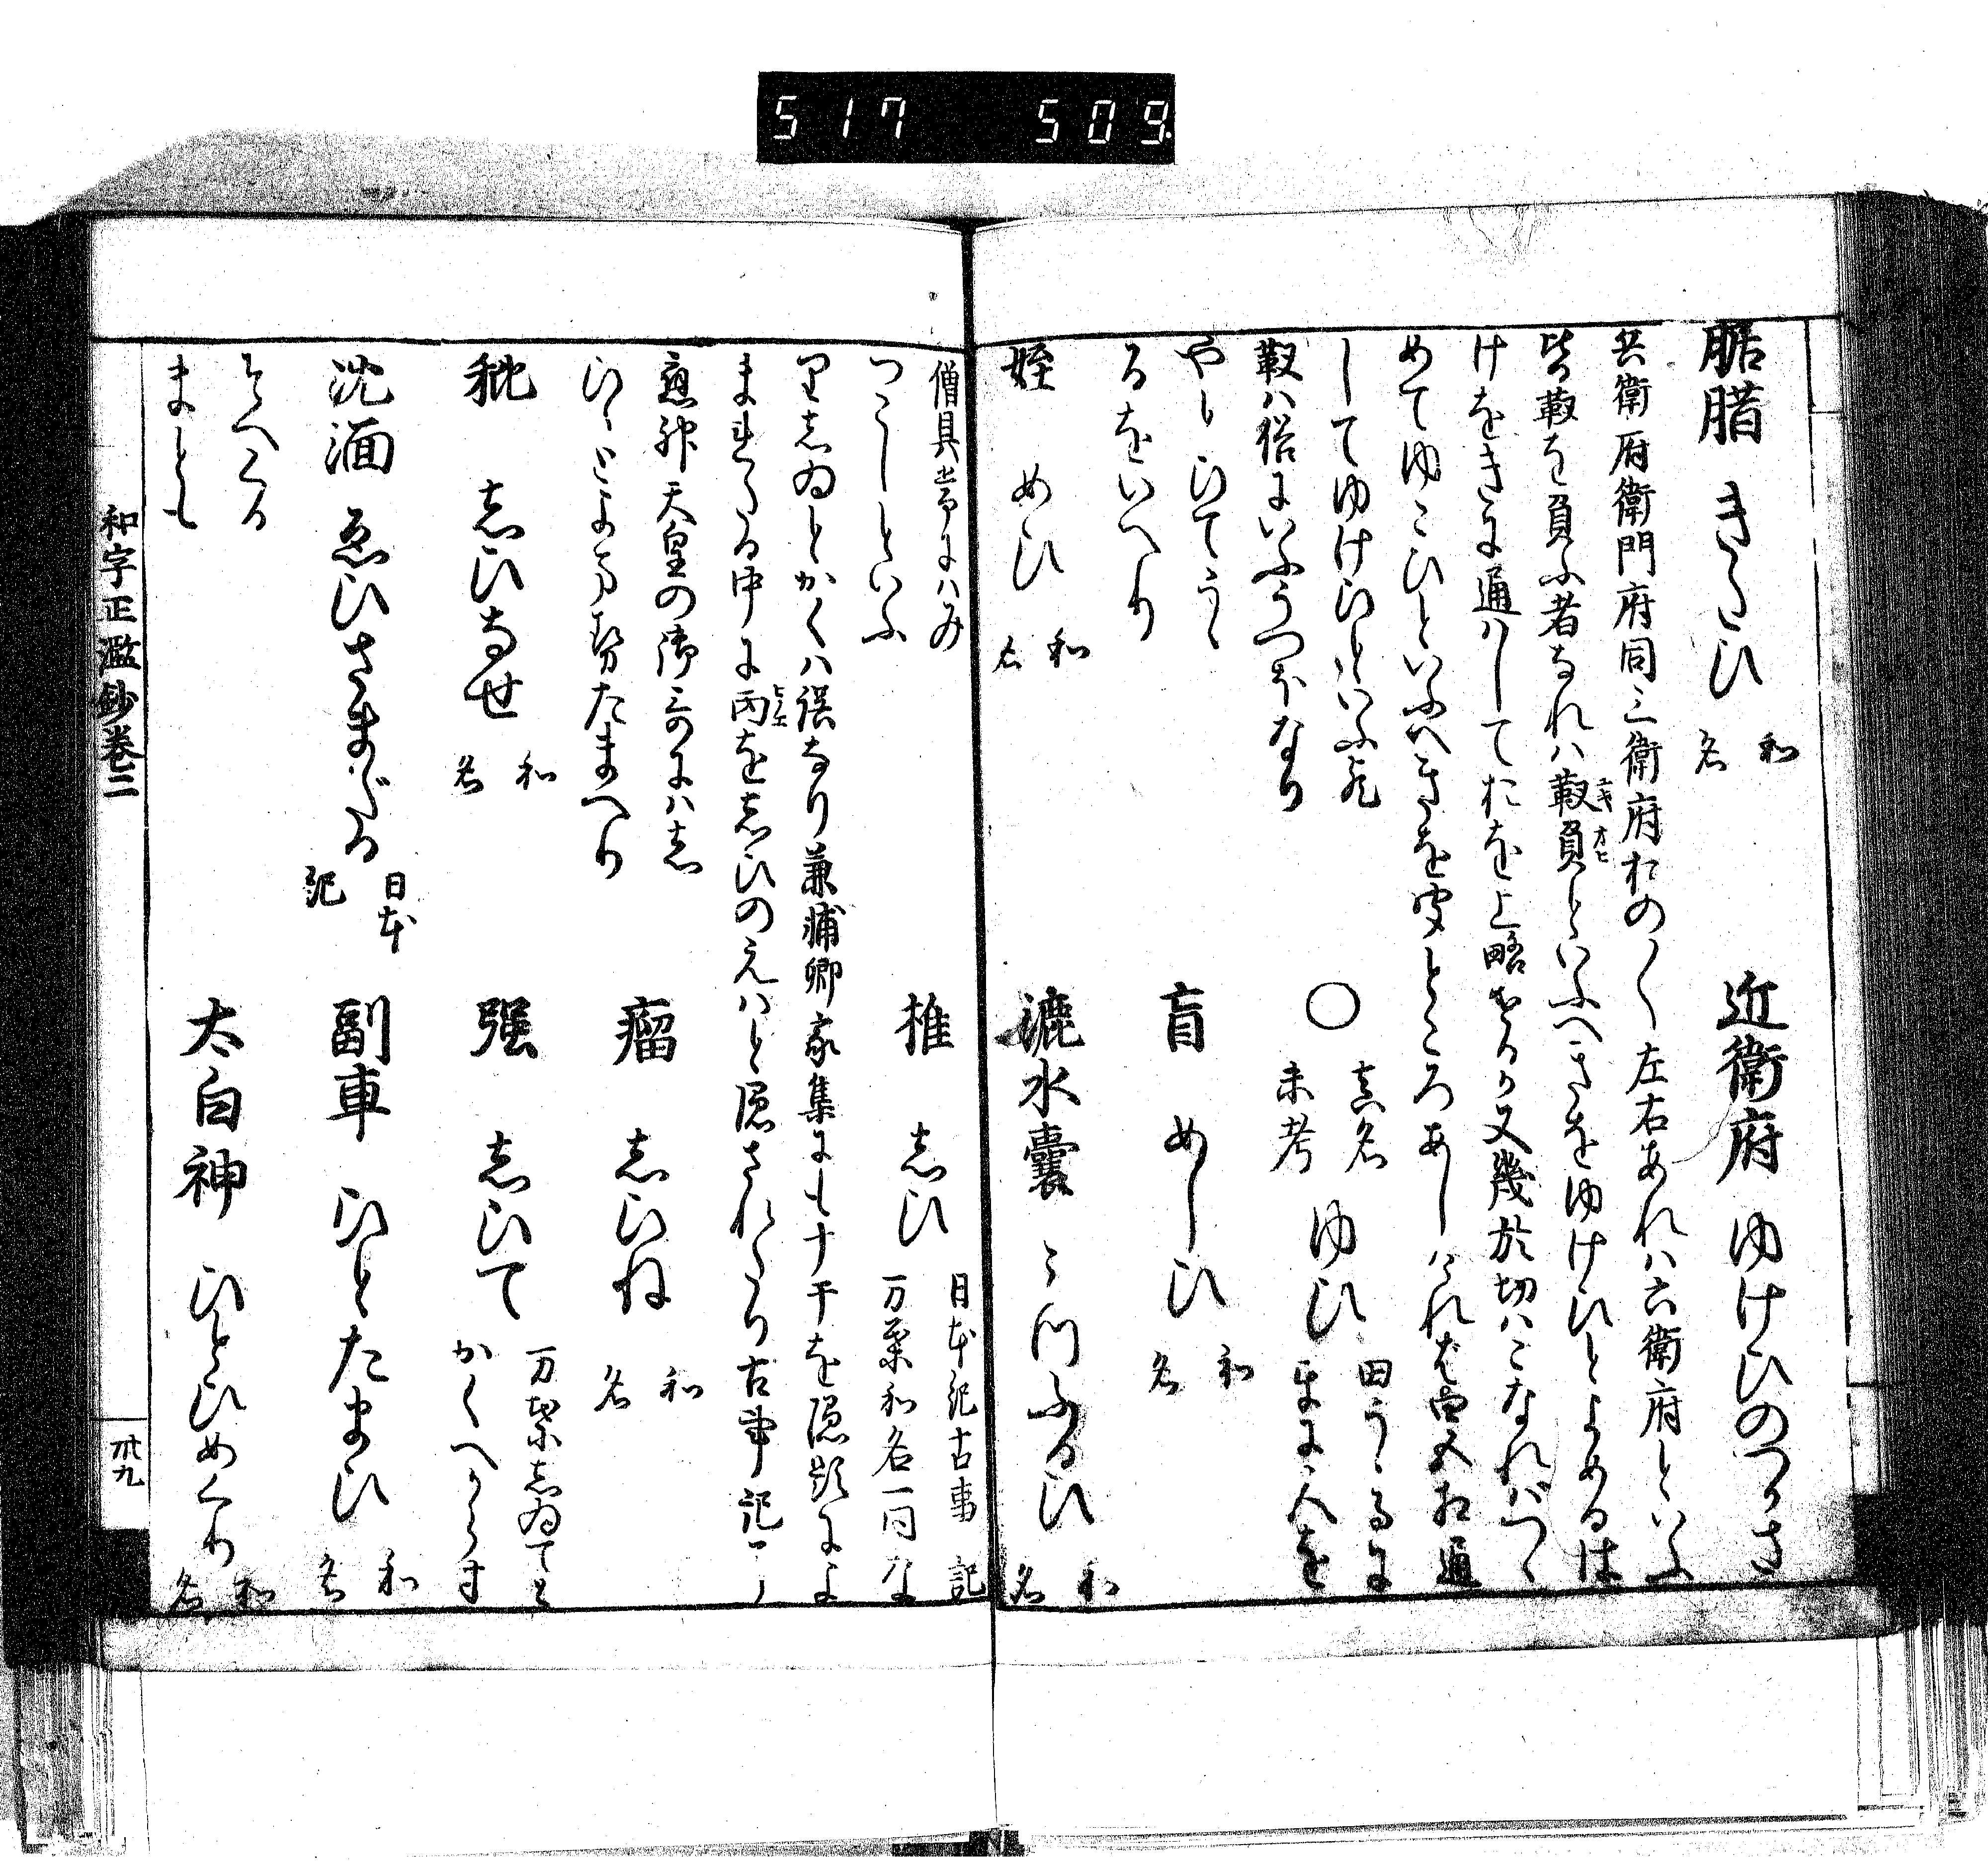 517 509
腒腊 きたひ 和名 近衛府 ゆけひのつかさ
兵衛府衛門府同三衛府おの〱左右あれハ六衛府といふ
皆靫を負ふ者なれハ靫負といふへきをゆけひとよめるは
けをきに通ハしておを上略せるか又幾於切ハこなれバつゝ
めてゆこひといふへきを
してゆけひといふ
靫ハ俗にいふうつほなり
○ 真名未考 ゆひ 田うゝるに
やとひてうゝ
るをいへり
盲 めしひ 和名
姪 めひ 和名 漉水嚢 こしみつふるひ 和名
僧具常にハみ
つこしといふ
椎 しひ 日本紀古事記
万葉和名一同な
りしゐとかくハ誤なり兼輔卿家集にも十干を隠題によ
まれたる中に丙をしひのえハと隠されたり古事記に
應神天皇の御哥にハ志
比々とよませたまへり
瘤 しひね 和名
粃 しひなせ 和名 强 しひて 万葉しゐてと
かくへからす
沈湎 ゑひさまたる 日本紀 副車 ひとたまひ 和名
そへくる
まとも
太白神 ひとひめくり 和名
和字正濫鈔巻三
卅九